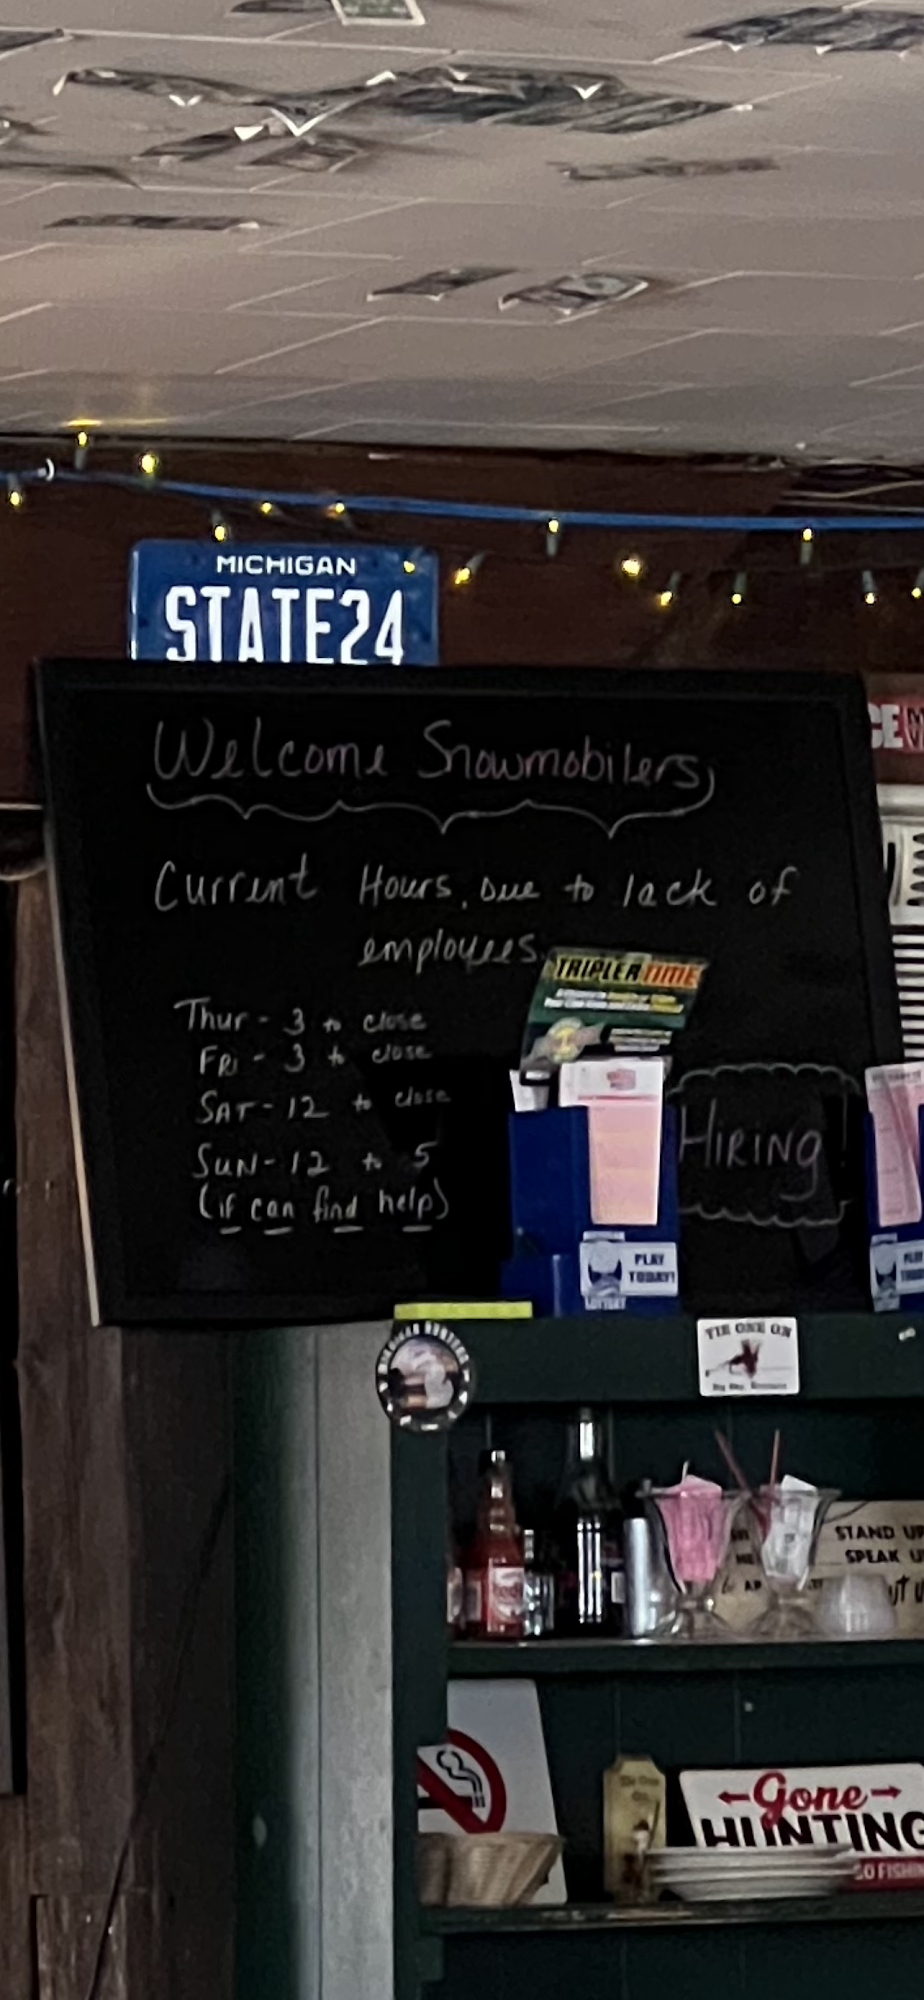 MICHIGAN
STATE24
Welcome Snowmobilers
Current Hours, Due to lack of
employees.
Thur - 3 to close
Fri - 3 to close
SAT - 12 to close
SUN - 12 to 5
(if can find help)
TRIPLER TIME
HIRING
PLAY
TODAY!
LOTTERY
TIE ONE ON
STAND UP
SPEAK U
Gone
HUNTING
GO FISHIN